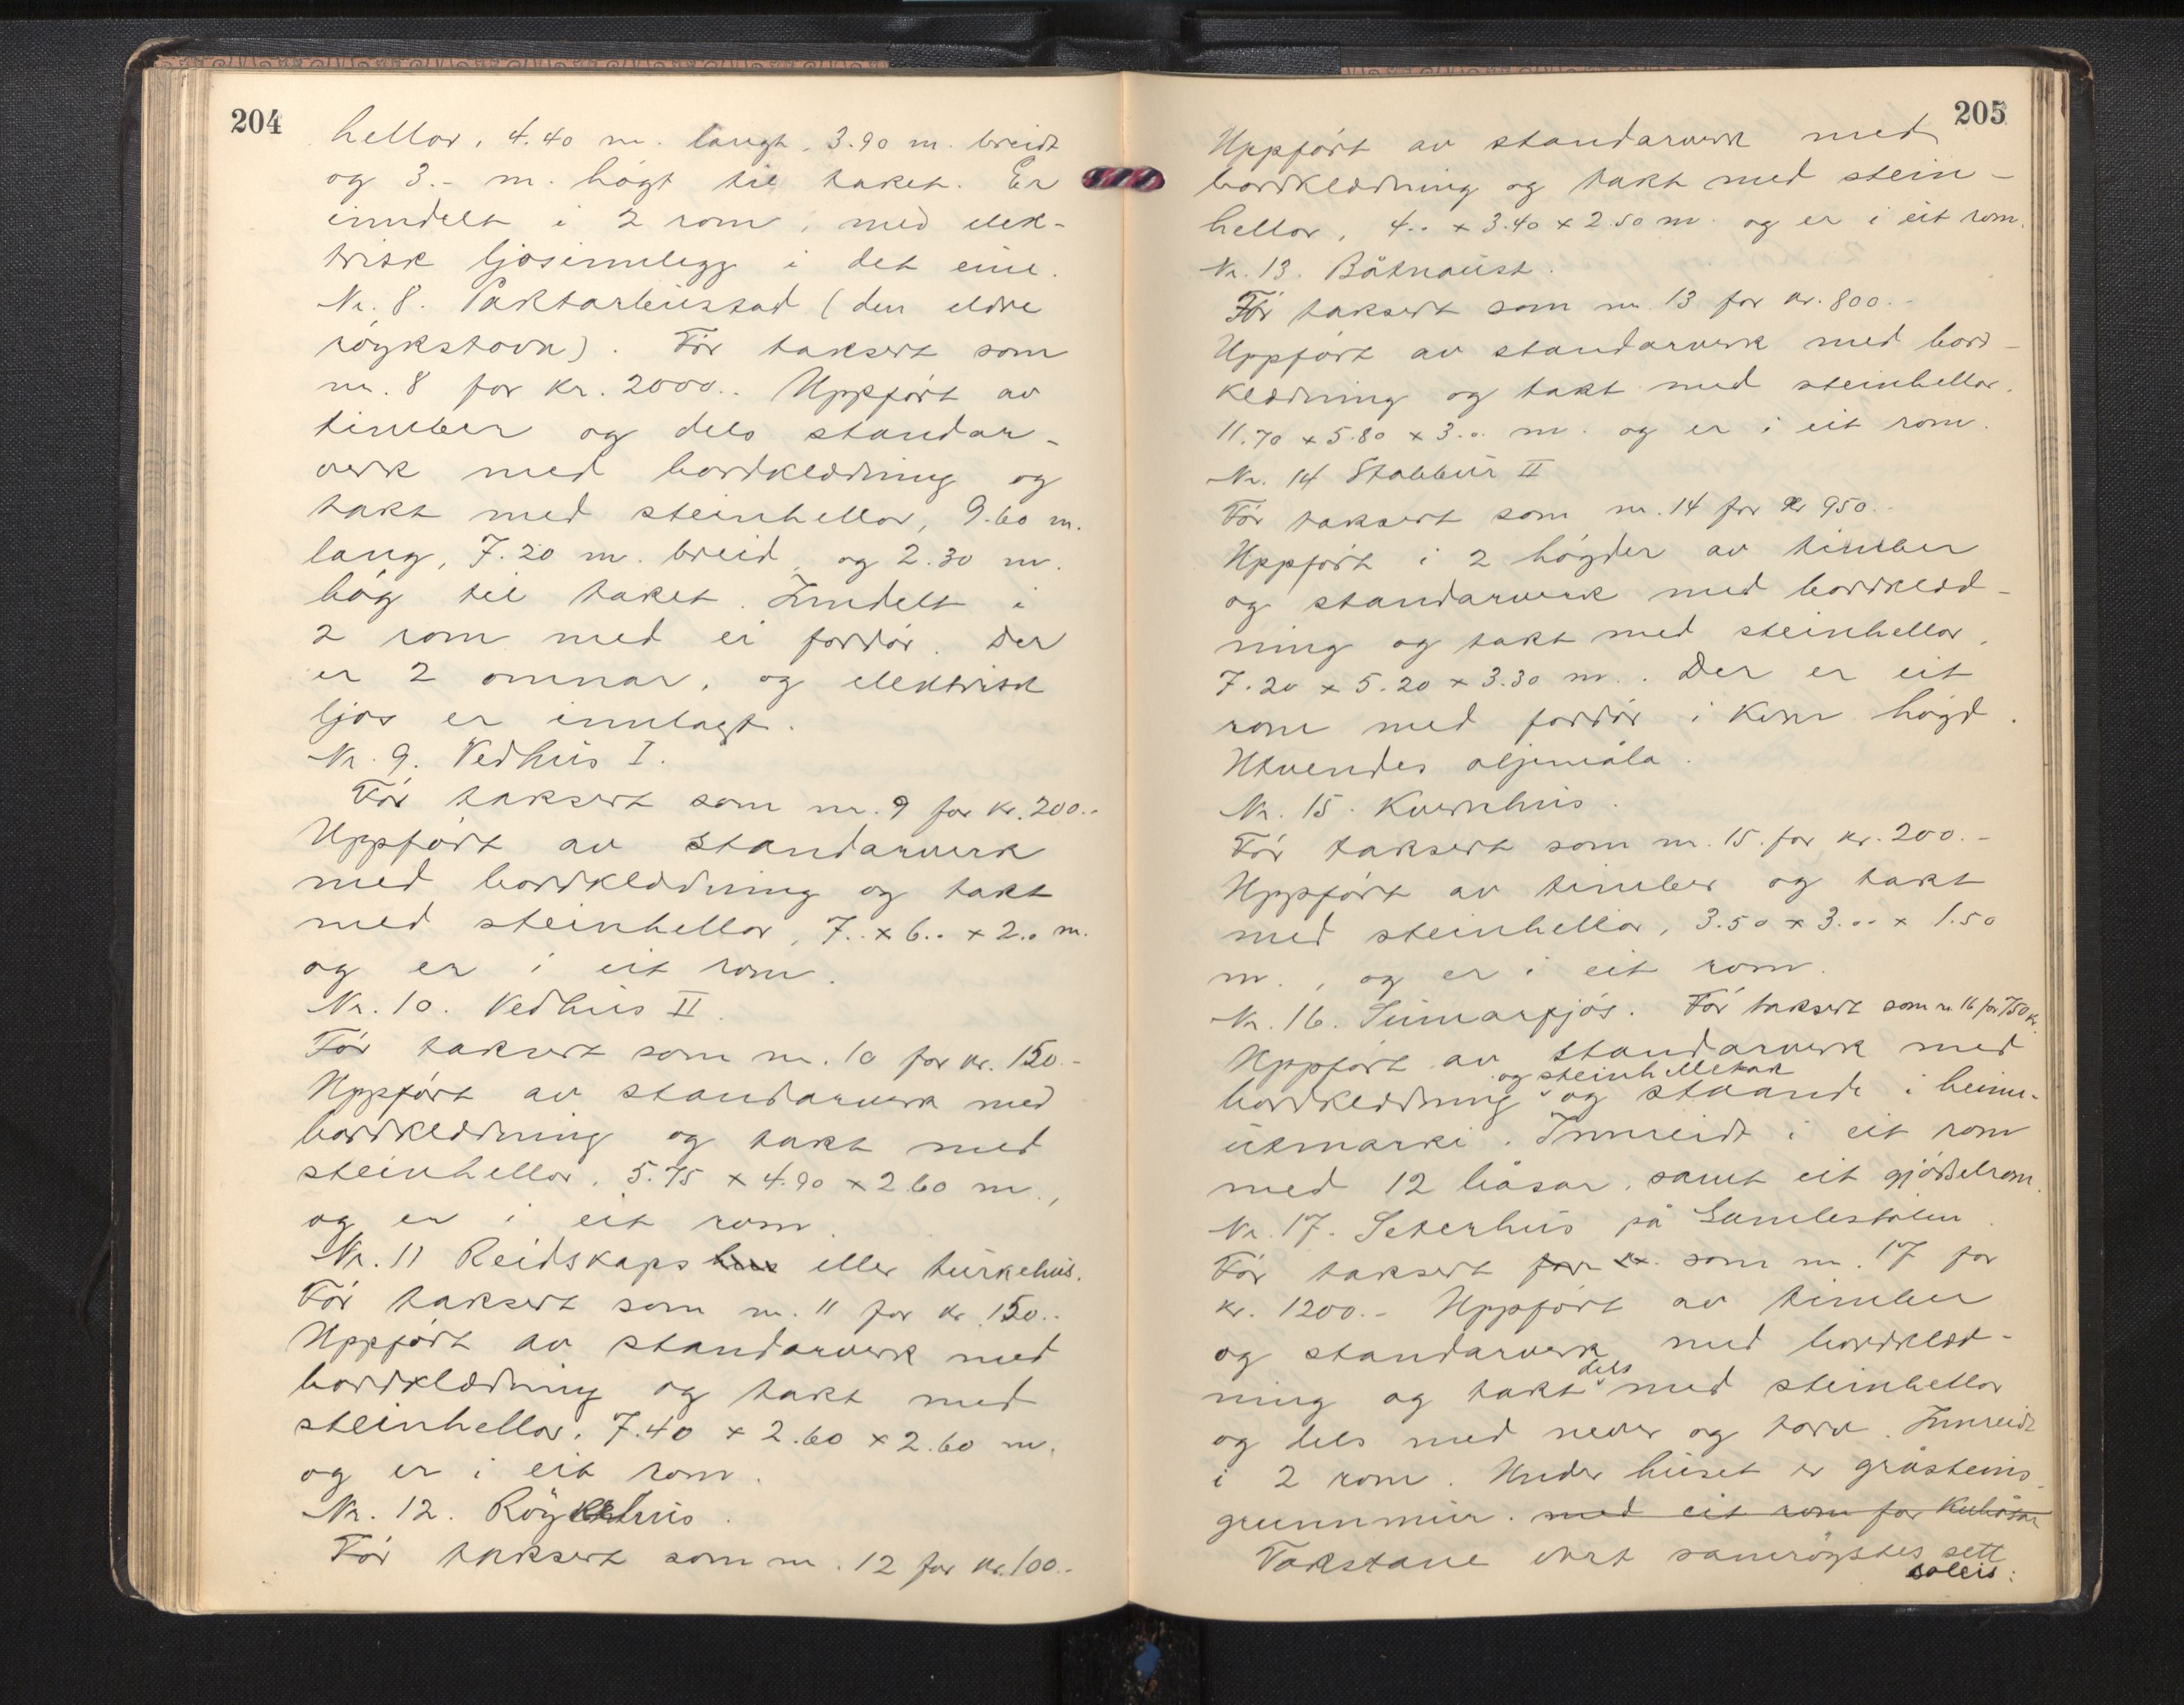 204
hellor, 4.40 m. langt, 3.90 m. breidt
og 3.- m. högt til taket. Er
inndelt i 2 rom, med elek-
trisk ljosinnlegg i det eine.
Nr. 8. Paktarbustad (den eldre
röykstova). För taksert som
nr. 8 for kr. 2000.. Uppfört av
timber og dels standar-
verk med bordklædning og
takt med steinhellor, 9.60 m.
lang, 7.20 m. breid, og 2.30 m.
hög til taket. Inndelt i
2 rom med ei fordör. Der
er 2 omnar, og elektrisk
ljos er innlagt.
Nr. 9. Vedhus I.
För taksert som nr. 9 for kr. 200.-
Uppfört av standarverk
med bordklædning og takt
med steinhellor, 7.. x 6.. x 2.. m.
og er i eit rom.
Nr. 10. Vedhus II.
För taksert som nr. 10 for kr. 150.-
Uppfört av standarverk med
bordklædning og takt med
steinhellor, 5.75 x 4.90 x 2.60 m.,
og er i eit rom.
Nr. 11 Reidskaps hus eller turkehus.
För taksert som nr. 11 for kr. 150..
Uppfört av standarverk med
bordklædning og takt med
steinhellor, 7.40 x 2.60 x 2.60 m.
og er i eit rom.
Nr. 12. Röykehus.
För taksert som nr. 12 for kr. 100.-
205
Uppfört av standarverk med
bordklædning og takt med stein-
hellor, 4.. x 3.40 x 2.50 m. og er i eit rom.
Nr. 13. Båtnaust.
För taksert som nr. 13 for kr. 800.-
Uppfört av standarverk med bord-
klædning og takt med steinhellor.
11.70 x 5.80 x 3.. m. og er i eit rom.
Nr. 14 Stabbur II
För taksert som nr. 14 for kr 950.-
Uppfört i 2 högder av timber
og standarverk med bordklæd-
ning og takt med steinhellor.
7.20 x 5.20 x 3.30 m.. Der er eit
rom med fordör i kvar högd.
Utvendes oljemåla.
Nr. 15. Kvernhus.
För taksert som nr. 15. for kr. 200.-
Uppfört av timber og takt
med steinhellor, 3.50 x 3... x 1.50
m., og er i eit rom.
Nr. 16. Sumarfjös. För taksert som nr. 16 for 750 kr.
Uppfört av standarverk med
og steinhelletak
bordklædning og stvande i heimi-
utmarki. Innreidt i eit rom
med 12 båsar, samt eit gjödselrom.
Nr. 17. Seterhus på Gamlestølen.
För taksert for kr. som nr. 17 for
kr. 1200.- Uppfört av timber
og standarverk med bordklæd-
dels
ning og takt med steinhellor
og dels med never og torv. Innreidt
i 2 rom. Under huset er gråsteins
grunnmur. med eit rom for kubåsar
Takstane vart samröystes sett
soleis: